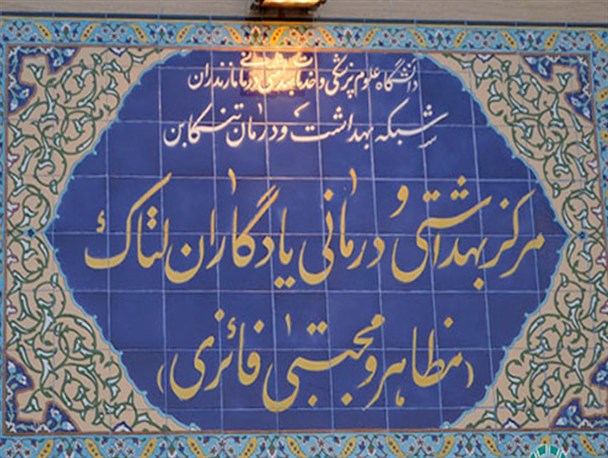 دانشگاه علوم پزشکی و خدمات بهداشتی درمانی مازندران
شبکه بهداشت و درمان تنکابن
مرکز بهداشتی و درمانی یادگاران لتاک
(مظاهر و مجتبی فائزی)